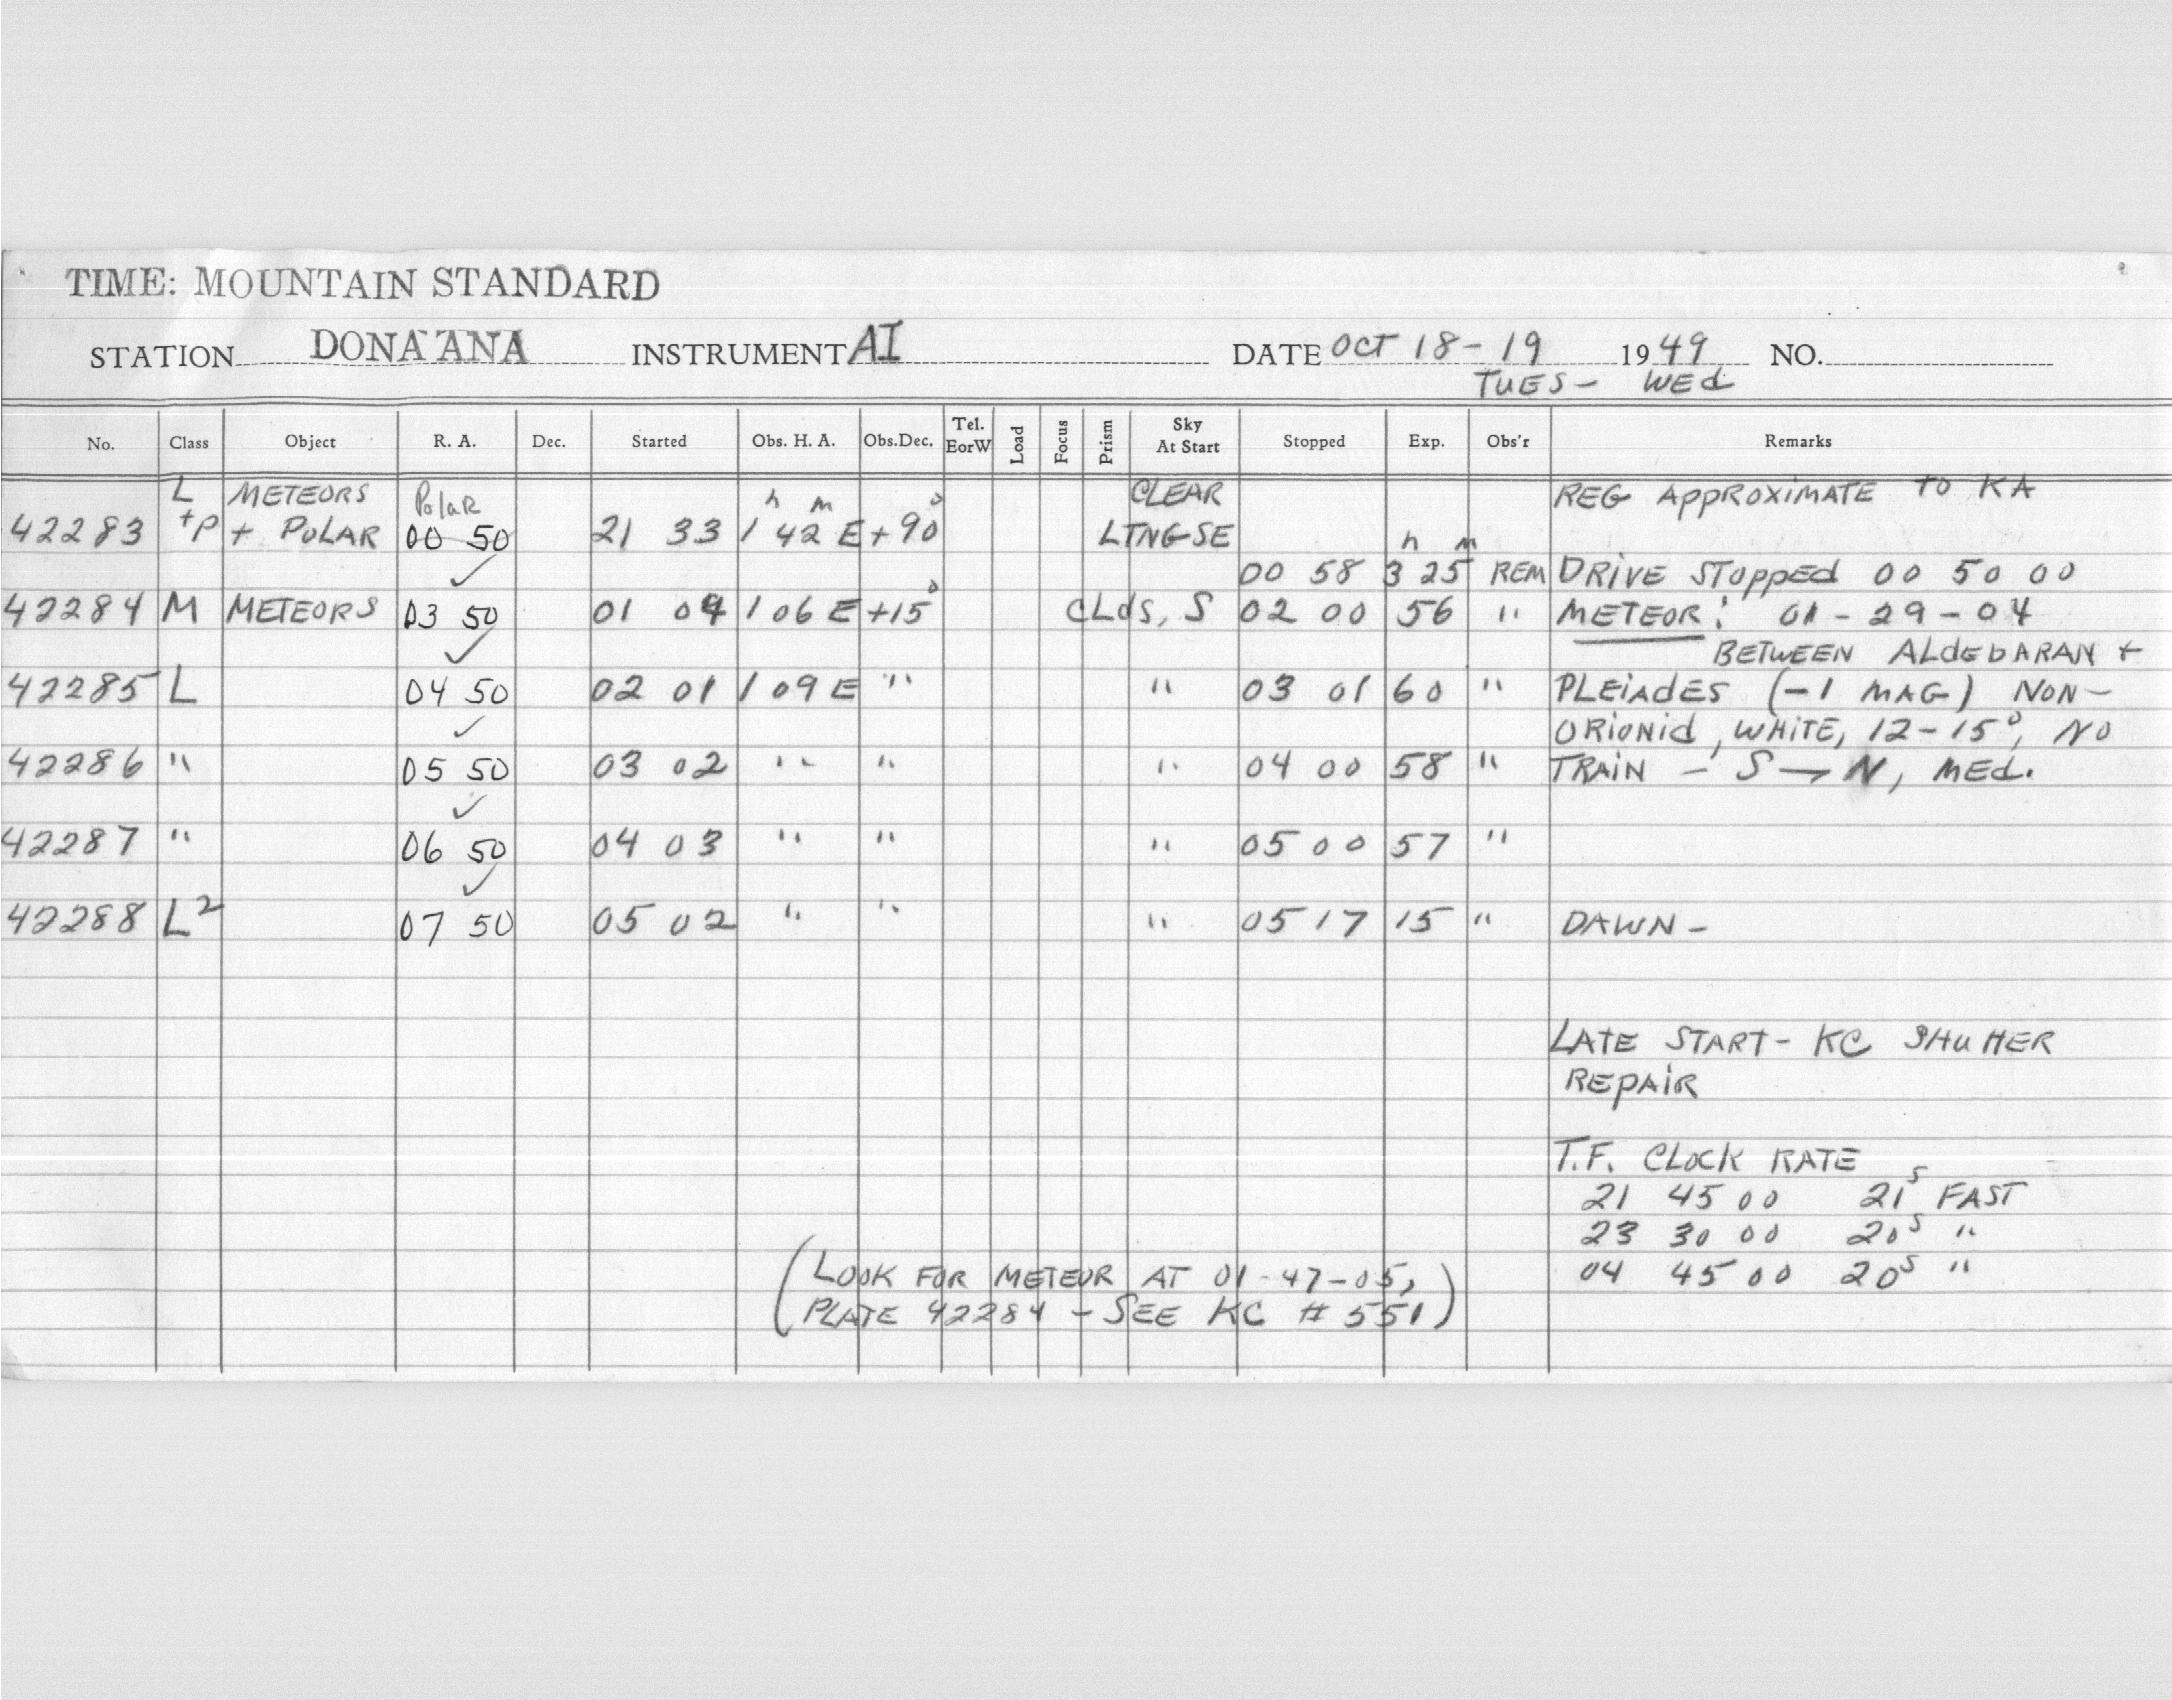 TIME: MOUNTAIN STANDARD
STATION DONA ANA INSTRUMENT AI DATE OCT 18-19 1949 NO.
TUES- WEd
No. Class Object R. A. Dec. Started Obs. H. A. Obs.Dec. Tel. EorW Load Focus Prism Sky At Start Stopped Exp. Obs'r Remarks
L METEORS Polar h m ° CLEAR REG APPROXIMATE to KA
42283 +P + POLAR 00 50 21 33 1 42 E +90 LTNG-SE h m
✓ 00 58 3 25 REM DRIVE STOPPED 00 50 00
42284 M METEORS 03 50 01 04 1 06 E +15° CLdS, S 02 00 56 " METEOR: 01-29-04
✓ BETWEEN ALdEbARAN +
42285 L 04 50 02 01 1 09 E " " 03 01 60 " PLEiAdES (-1 MAG) NON-
✓ ORiONid, WHiTE, 12-15°, NO
42286 " 05 50 03 02 " " " 04 00 58 " TRAiN - S → N, MEd.
✓
42287 " 06 50 04 03 " " " 05 00 57 "
✓
42288 L² 07 50 05 02 " " " 05 17 15 " DAWN -
LATE START - KC SHUTTER
REPAiR
T.F. CLOCK RATE
21 45 00 21ˢ FAST
23 30 00 20ˢ "
04 45 00 20ˢ "
(LOOK FOR METEOR AT 01-47-05,
PLATE 42284 - SEE KC # 551)